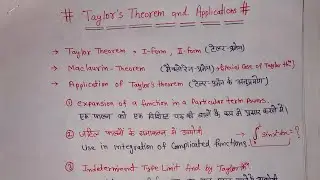 # Taylor's Theorem and Applications #
→ Taylor Theorem - I-form, II-form (टेलर-प्रमेय)
→ Maclaurin-Theorem (मैकलॉरिन-प्रमेय) → Special Case of Taylor Thm
→ Application of Taylor's theorem (टेलर-प्रमेय के अनुप्रयोग)
① expansion of a function in a Particular term Powers.
एक फलन को एक विशिष्ट पद की घातों के, रूप में प्रसार करने में।
② जटिल फलनों के समाकलन में उपयोगी
Use in Integration of Complicated functions.
③ Indeterminent Type Limit find by Taylor Thm